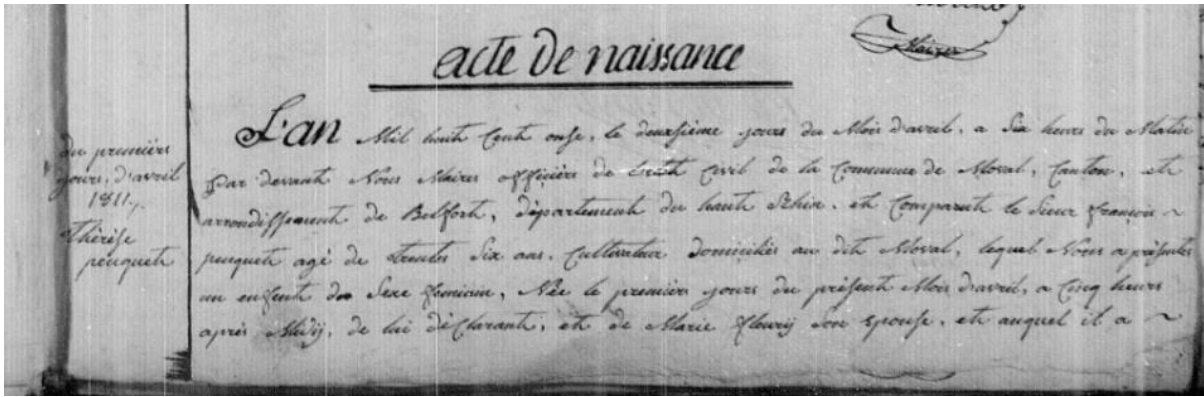 Maire
acte De naissance
du premiers
jours. d'avril
1811.
thérèse
peuqueti
L'an Mil huit Cent onse, le deuxsième jours du Mois d'avril, a Six heurs du Matin
par devant Nous Maires officiers de Civil de la Commune de Moval, Canton, et
arrondissement de Belfort, département du haut Rhin, et Comparut le Sieur françois ~
peuquet agé de trentes Six ans, Cultivateur domiciliés au dit Moval, lequel Nous a présentés
un enfent du Sexe feminin, Née le premiers jours du présent Mois d'avril, a Cinq heurs
après Midÿ, de lui déclarant, et de Marie fleurÿ Son epouse, et auquel il a ~